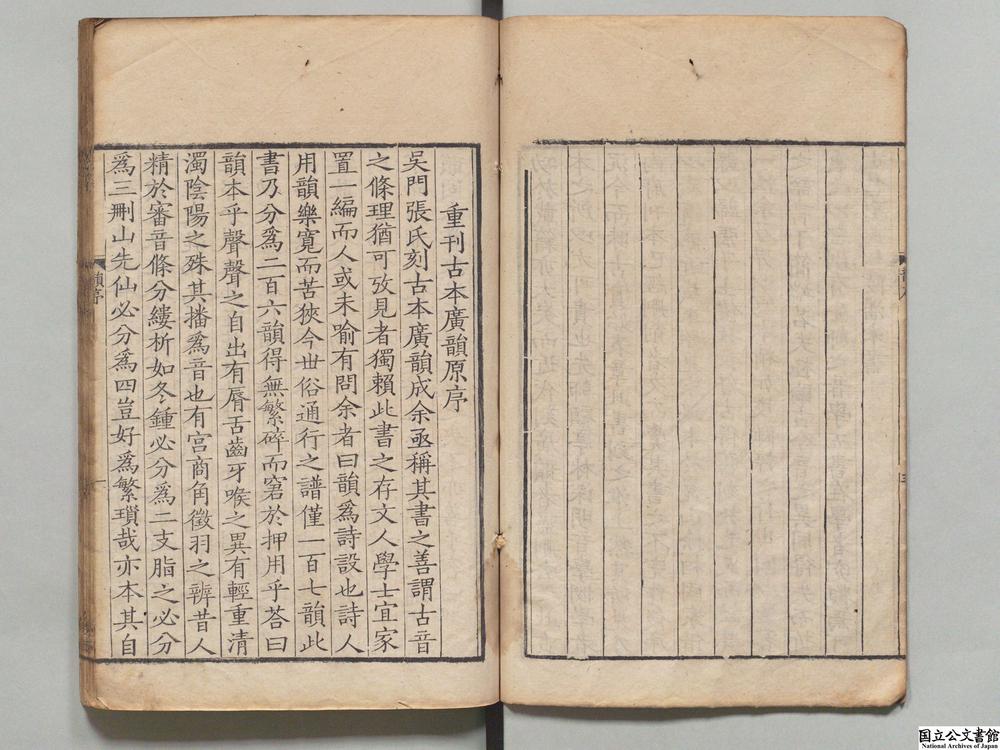 重刊古本廣韻原序
吳門張氏刻古本廣韻成余亟稱其書之善謂古音
之條理猶可攷見者獨賴此書之存文人學士宜家
置一編而人或未喻有問余者曰韻為詩設也詩人
用韻樂寬而苦狹今世俗通行之譜僅一百七韻此
書乃分爲二百六韻得無繁碎而窘於押用乎荅曰
韻本乎聲聲之自出有脣舌齒牙喉之異有輕重清
濁陰陽之殊其播爲音也有宮商角徵羽之辨昔人
精於審音條分縷析如冬鍾必分爲二支脂之必分
爲三刪山先仙必分爲四豈好爲繁瑣哉亦本其自
韻序
一
国立公文書館
National Archives of Japan